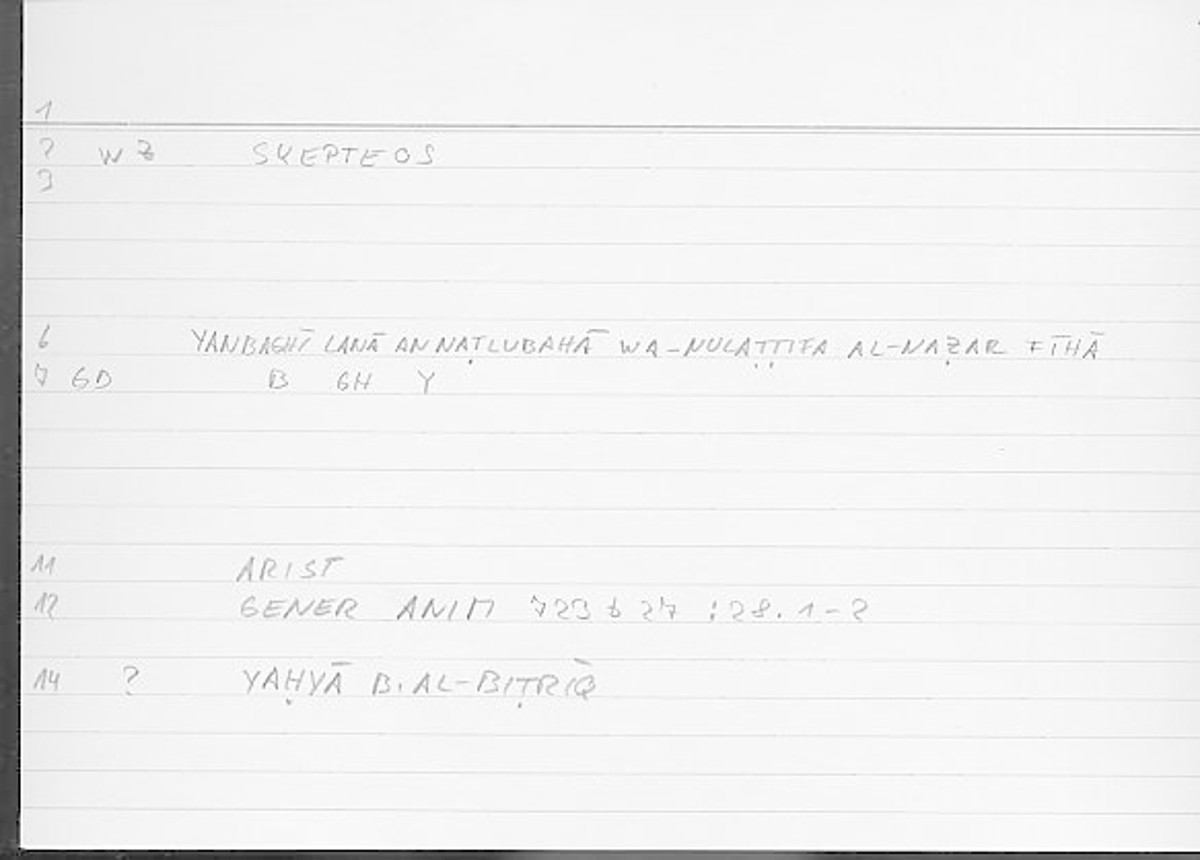 1
2 WZ SKEPTEOS
3
6 YANBAGHĪ LANĀ AN NAṬLUBAHĀ WA-NULAṬṬIFA AL-NAẒAR FĪHĀ
7 GD B GH Y
11 ARIST
12 GENER ANIM 723 b 27 : 28. 1-2
14 ? YAḤYĀ B. AL-BIṬRĪQ